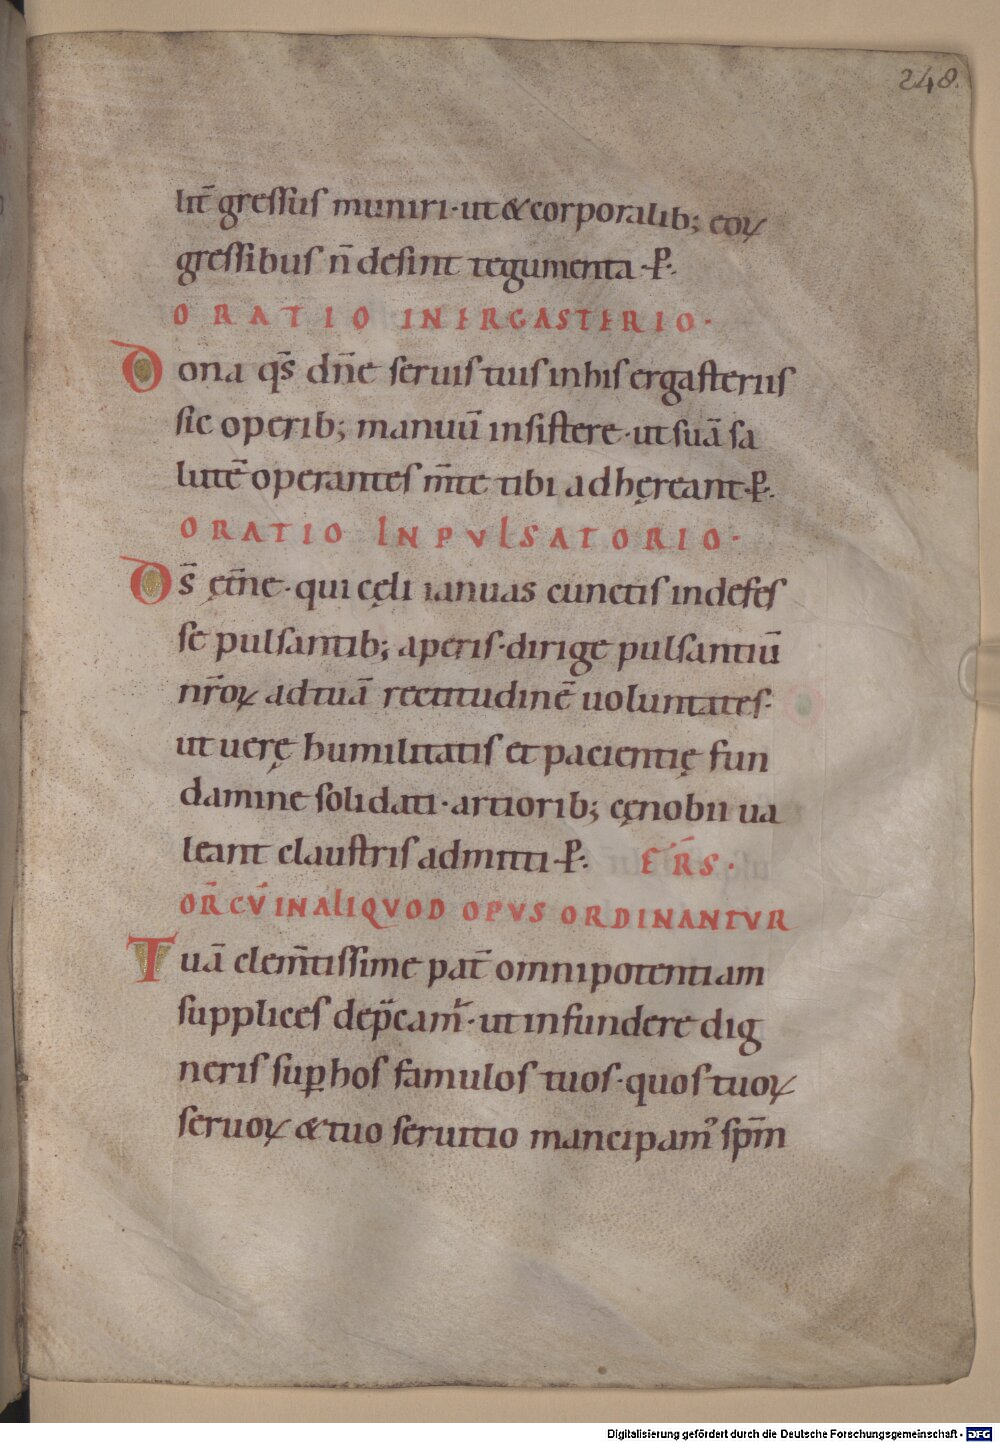 248.
lit̄ gressus muniri · ut & corporalib; eoꝝ
gressibus n̄ desint tegumenta · P̄ ·
ORATIO IN ERGASTERIO ·
Dona qs̄ dn̄e seruis tuis in his ergasteriis
sic operib; manuū insistere · ut suā sa
lutē operantes m̄te tibi adhęreant · P̄ ·
ORATIO IN PVLSATORIO ·
Ds̄ ęt̄ne · qui cęli ianuas cunctis indefes
se pulsantib; aperis · dirige pulsantiū
nr̄oꝝ ad tuā rectitudinē uoluntates ·
ut uerę humilitatis et pacientię fun
damine solidati · artiorib; cęnobii ua
leant claustris admitti · P̄ · FR̄S ·
OR̄ CV̄ IN ALIQVOD OPVS ORDINANTVR
Tuā clem̄tissime pat̄ omnipotentiam
supplices dep̄cam̄ · ut infundere dig
neris suꝑ hos famulos tuos · quos tuoꝝ
seruoꝝ & tuo seruitio mancipam᾽ sp̄m
Digitalisierung gefördert durch die Deutsche Forschungsgemeinschaft - DFG